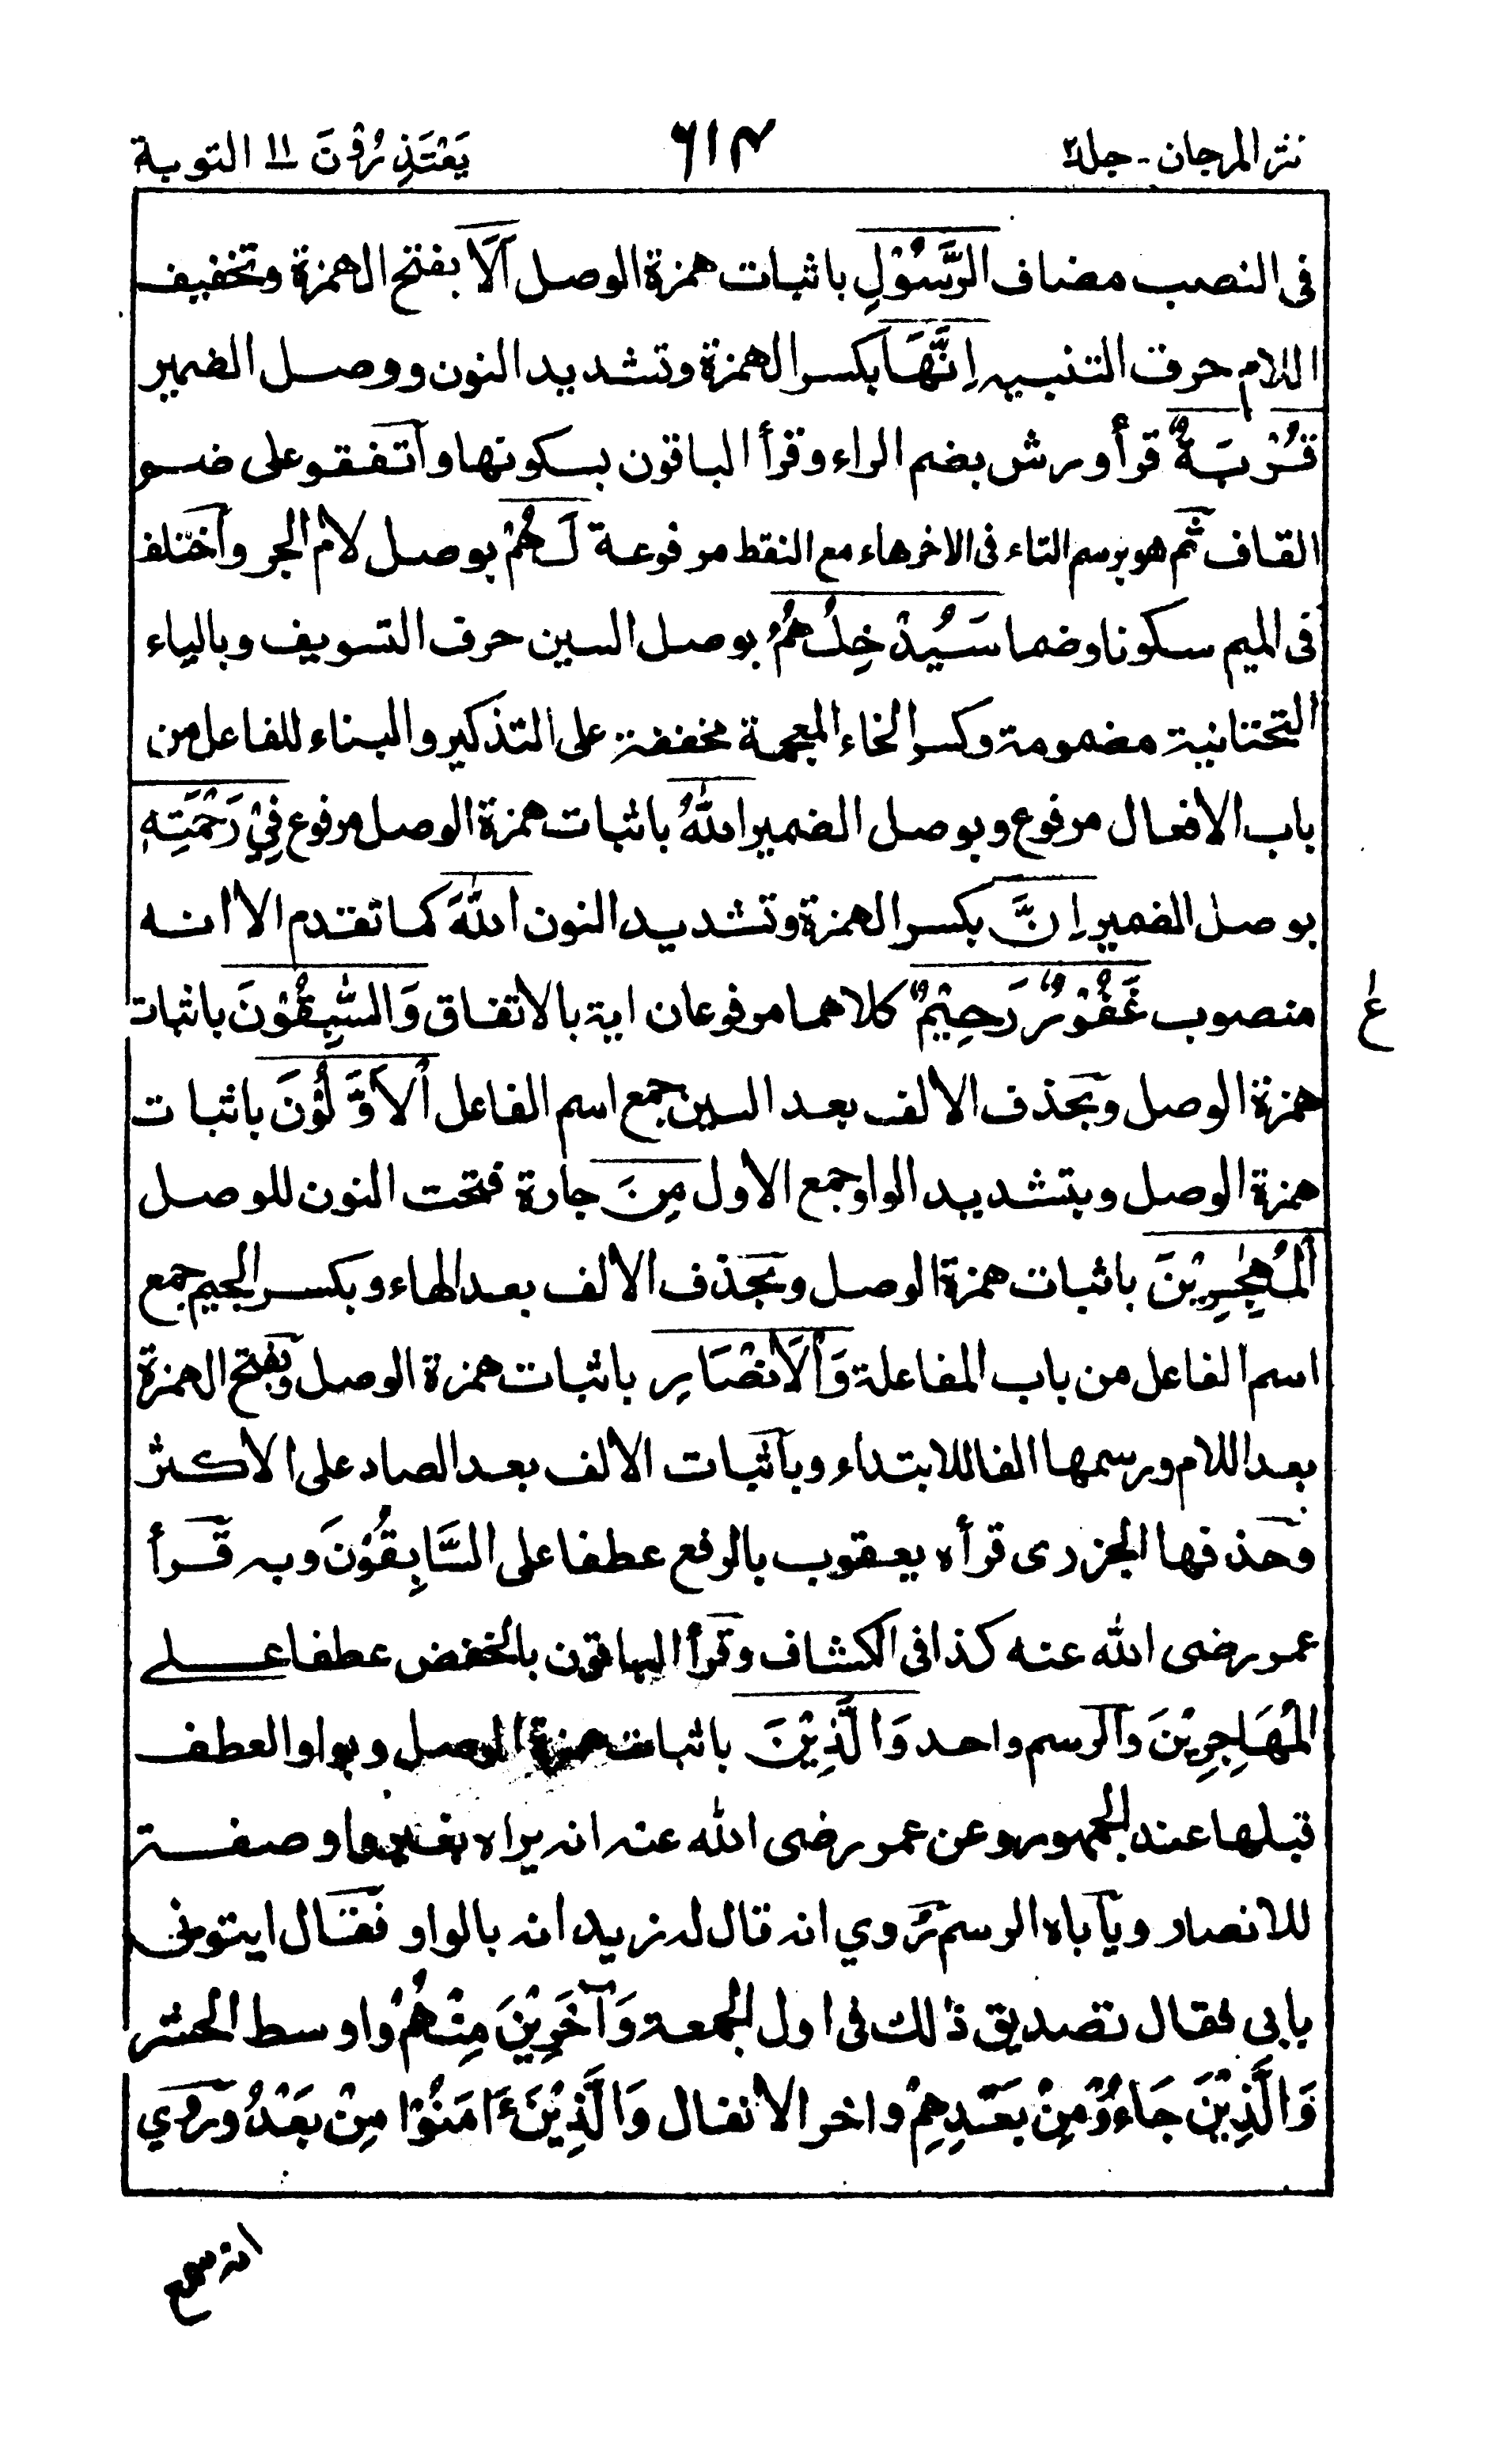 نثر المرجان - جلد۲ ۶۱۴ يَعْتَذِرُوْنَ ۱۱ التوبة
فى النصب مضاف الرَّسُوْلِ باثبات همزة الوصل اَلَا بفتح الهمزة وتخفيف
اللام حرف التنبيه اِنَّهَا بكسر الهمزة وتشديد النون ووصل الضمير
قُرْبَةٌ قرأ ورش بضم الراء وقرأ الباقون بسكونها واتفقوعلى ضم
القاف ثم هو برسم التاء فى الاخر هاء مع النقط مرفوعة لَهُمْ بوصل لام الجر واختلف
فى الميم سكونا وضما سَيُدْخِلُهُمُ بوصل السين حرف التسويف وبالياء
التحتانية مضمومة وكسر الخاء المعجمة مخففة على التذكير والبناء للفاعل من
باب الافعال مرفوع وبوصل الضمير اللّٰهُ باثبات همزة الوصل مرفوع فِيْ رَحْمَتِهٖ
بوصل الضمير اِنَّ بكسر الهمزة وتشديد النون اللّٰهَ كما تقدم الا انه
منصوب غَفُوْرٌ رَحِيْمٌ كلاهما مرفوعان اية بالاتفاق وَالسّٰبِقُوْنَ باثبات
ع
همزة الوصل وبحذف الالف بعد السين جمع اسم الفاعل الْاَوَّلُوْنَ باثبات
همزة الوصل وبتشديد الواو جمع الاول مِنَ جارة فتحت النون للوصل
الْمُهٰجِرِيْنَ باثبات همزة الوصل وبحذف الالف بعد الهاء وبكسر الجيم جمع
اسم الفاعل من باب المفاعلة وَالْاَنْصَارِ باثبات همزة الوصل وبفتح الهمزة
بعد اللام ورسمها الفا للابتداء وباثبات الالف بعد الصاد على الاكثر
وحذفها الجزرى قرأه يعقوب بالرفع عطفا على السَّابِقُوْنَ وبه قرأ
عمر رضى الله عنه كذا فى الكشاف وقرأ الباقون بالخفض عطفا على
الْمُهَاجِرِيْنَ والرسم واحد وَالَّذِيْنَ باثبات همزة الوصل وبواو العطف
قبلها عند الجمهور وعن عمر رضى الله عنه انه يراه بغير واو صفة
للانصار وياباه الرسم رُوي انه قال له زيد انه بالواو فقال ايتونى
بابى فقال تصديق ذٰلك فى اول الجمعة وَآخَرِيْنَ مِنْهُمْ واوسط الحشر
وَالَّذِيْنَ جَاءُوْ مِنْ بَعْدِهِمْ واخر الانفال وَالَّذِيْنَ ءَامَنُوْا مِنْ بَعْدُ ورُوي
انه سمع